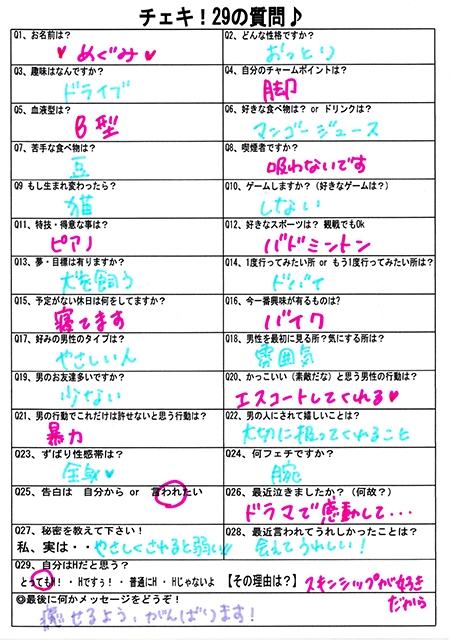 チェキ！29の質問♪
Q1、お名前は？
Q2、どんな性格ですか？
♥ めぐみ ♥
おっとり
Q3、趣味はなんですか？
Q4、自分のチャームポイントは？
ドライブ
脚
Q5、血液型は？
Q6、好きな食べ物は？ or ドリンクは？
B型
マンゴージュース
Q7、苦手な食べ物は？
Q8、喫煙者ですか？
豆
吸わないです
Q9 もし生まれ変わったら？
Q10、ゲームしますか？（好きなゲームは？）
猫
しない
Q11、特技・得意な事は？
Q12、好きなスポーツは？ 観戦でもOk
ピアノ
バドミントン
Q13、夢・目標は有りますか？
Q14、1度行ってみたい所 or もう1度行ってみたい所は？
犬を飼う
ドバイ
Q15、予定がない休日は何をしてますか？
Q16、今一番興味が有るものは？
寝てます
バイク
Q17、好みの男性のタイプは？
Q18、男性を最初に見る所？気にする所は？
やさしい人
雰囲気
Q19、男のお友達多いですか？
Q20、かっこいい（素敵だな）と思う男性の行動は？
少ない
エスコートしてくれる♥
Q21、男の行動でこれだけは許せないと思う行動は？
Q22、男の人にされて嬉しいことは？
暴力
大切に扱ってくれること
Q23、ずばり性感帯は？
Q24、何フェチですか？
全身♥
腕
Q25、告白は 自分から or 言われたい
Q26、最近泣きましたか？（何故？）
ドラマで感動して・・・
Q27、秘密を教えて下さい！
Q28、最近言われてうれしかったことは？
私、実は・・やさしくされると弱い!!
会えてうれしい！
Q29、自分はHだと思う？
とってもH！・Hですぅ！・普通にH・Hじゃないよ 【その理由は？】 スキンシップが好き
だから
◎最後に何かメッセージをどうぞ！
癒せるよう、がんばります！